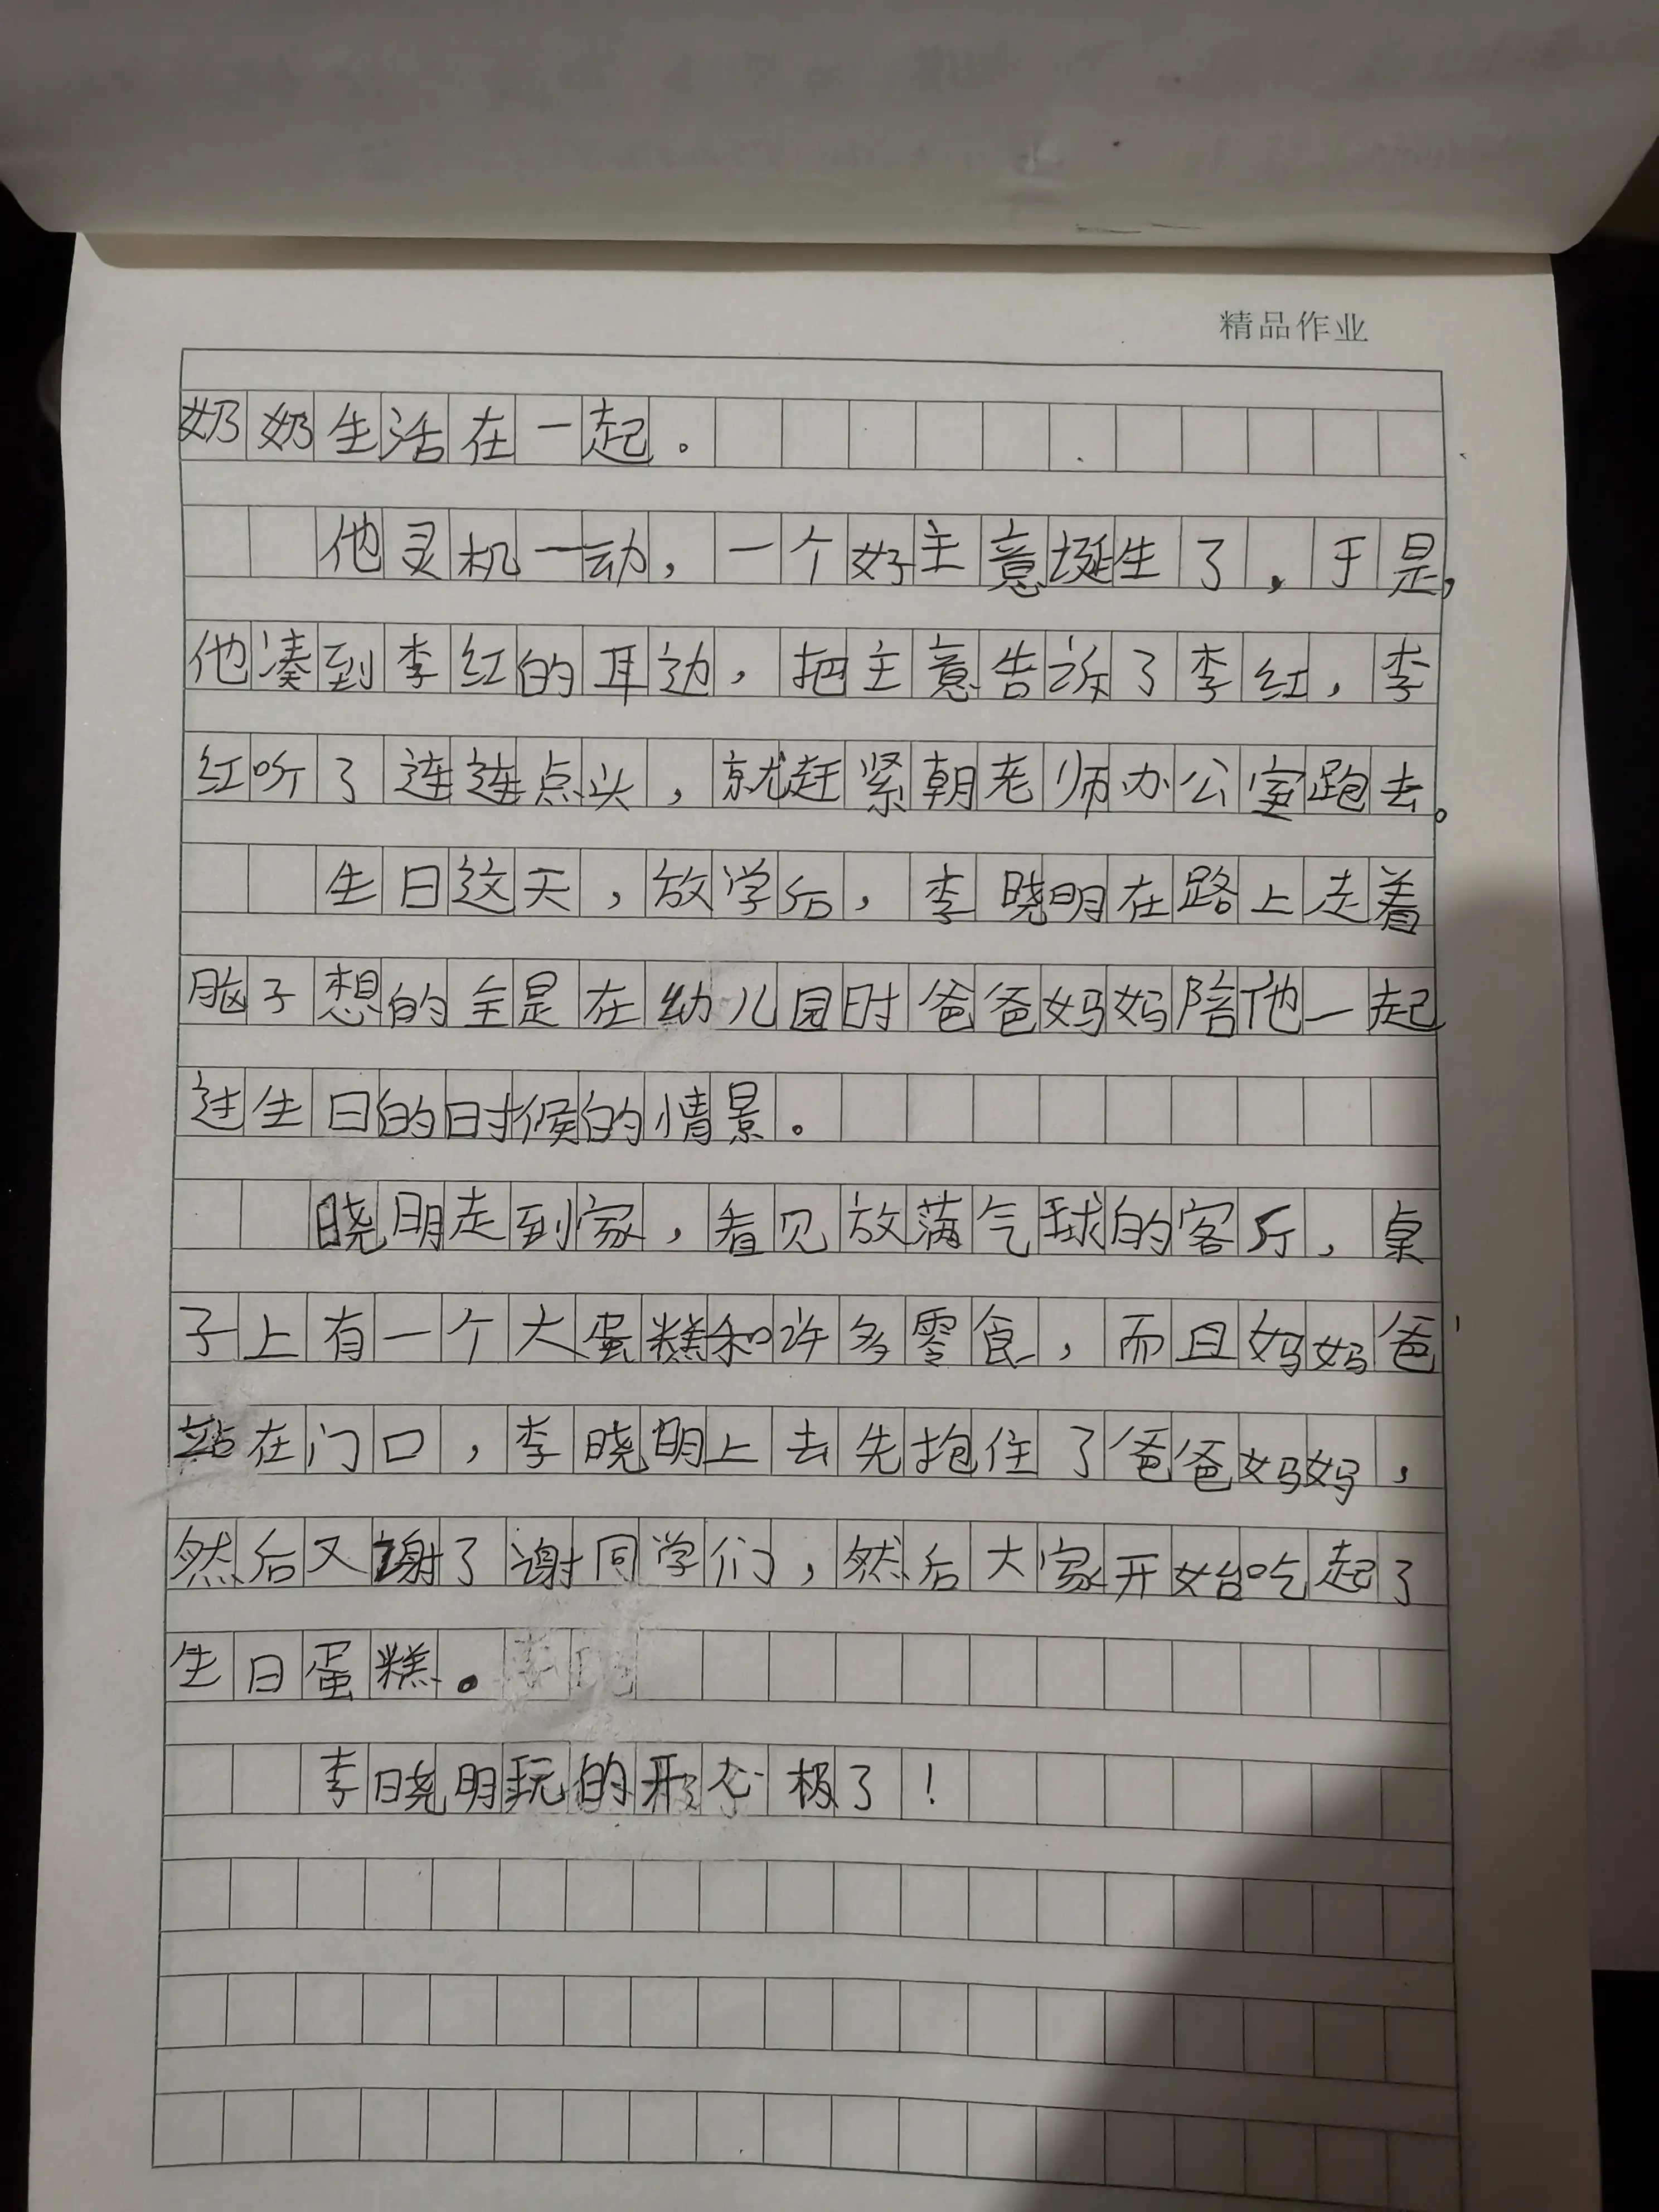 精品作业
奶奶生活在一起。
他灵机一动，一个好主意诞生了，于是，
他凑到李红的耳边，把主意告诉了李红，李
红听了连连点头，就赶紧朝老师办公室跑去。
生日这天，放学后，李晓明在路上走着
脑子想的全是在幼儿园时爸爸妈妈陪他一起
过生日的时候的情景。
晓明走到家，看见放满气球的客厅，桌
子上有一个大蛋糕和许多零食，而且妈妈爸
站在门口，李晓明上去先抱住了爸爸妈妈，
然后又谢了谢同学们，然后大家开始吃起了
生日蛋糕。
李晓明玩的开心极了！